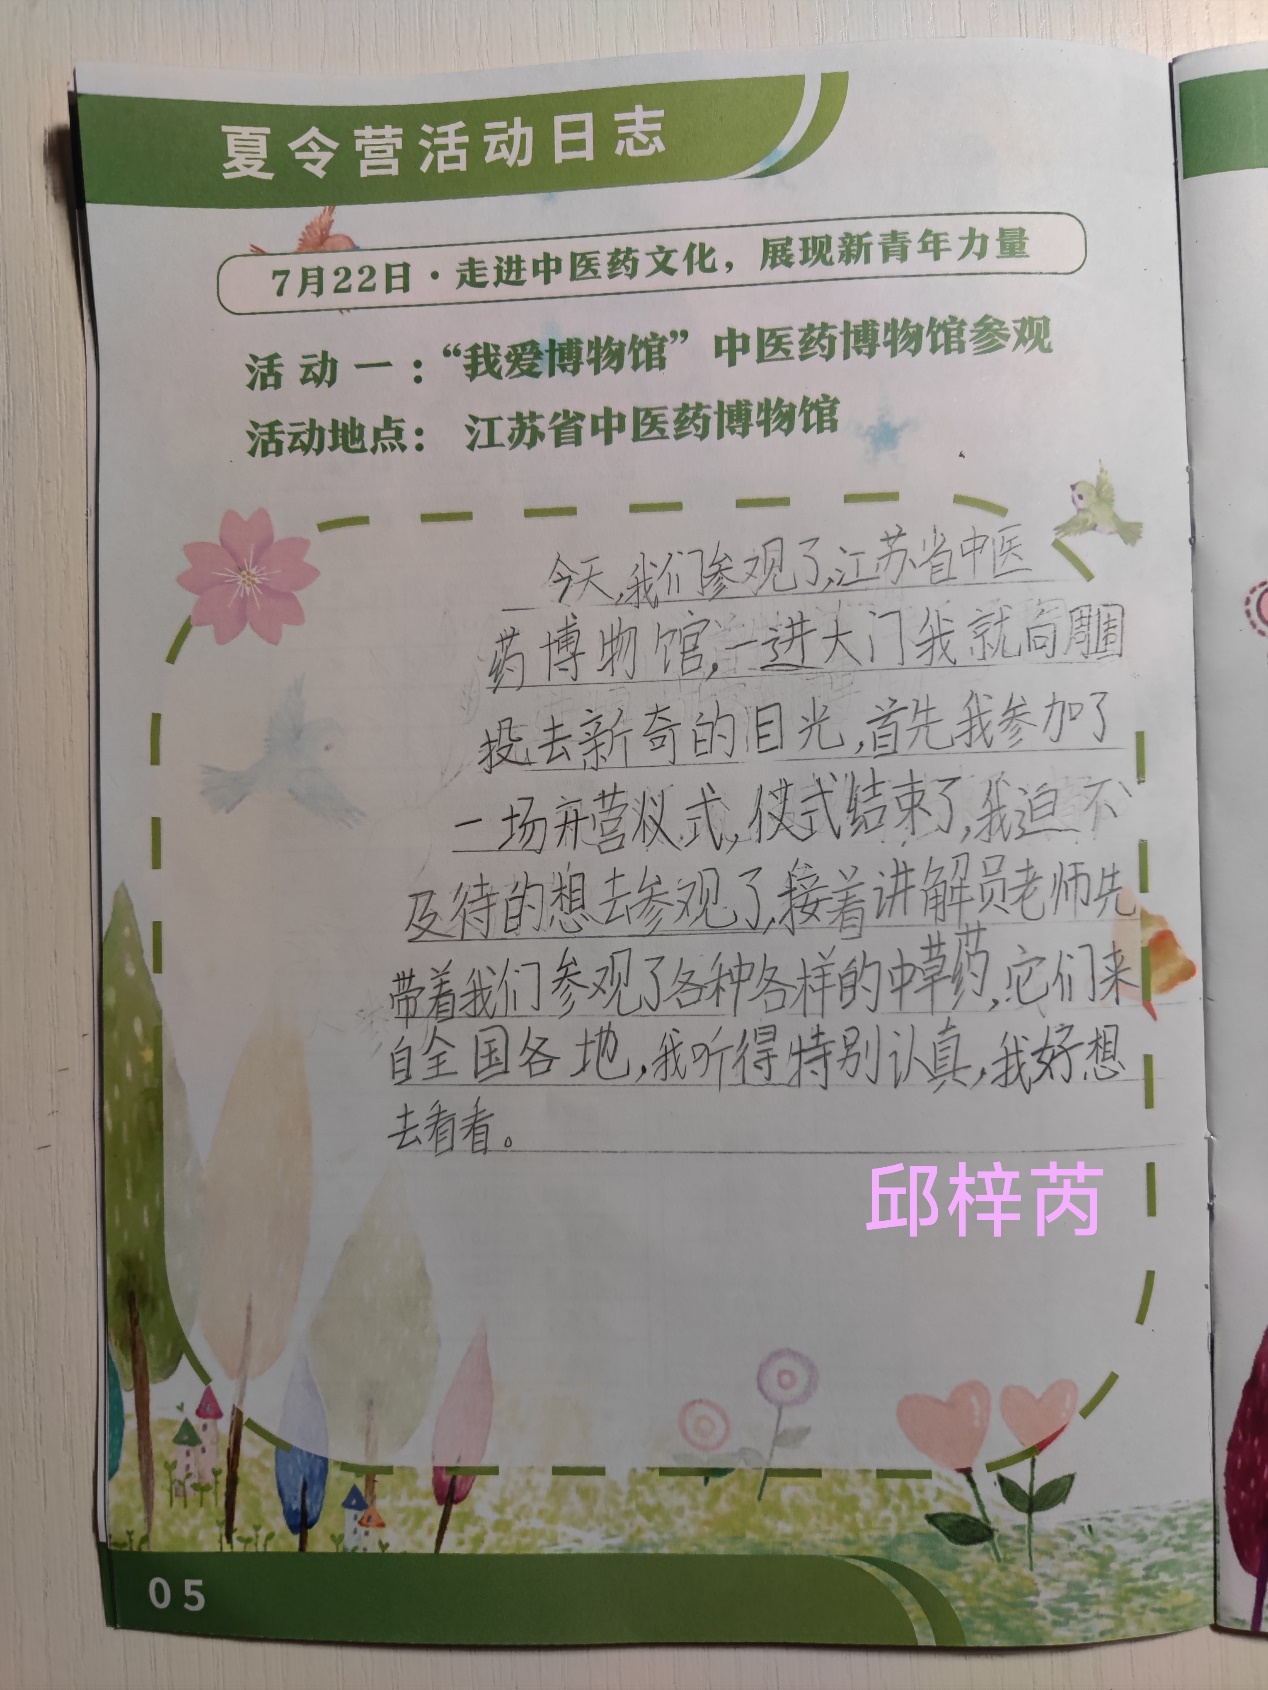 夏令营活动日志
7月22日·走进中医药文化，展现新青年力量
活动一：“我爱博物馆”中医药博物馆参观
活动地点： 江苏省中医药博物馆
今天,我们参观了,江苏省中医
药博物馆,一进大门我就向周围
投去新奇的目光,首先我参加了
一场开营仪式,仪式结束了,我迫不
及待的想去参观了,接着讲解员老师先
带着我们参观了各种各样的中草药,它们来
自全国各地,我听得特别认真,我好想
去看看。
邱梓芮
05